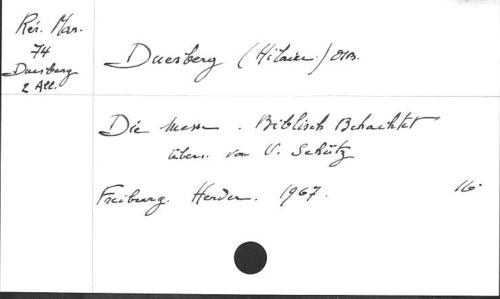 Rés. Mar.
74
Duesberg
2 All.
Duesberg (Hilaire) OSB.
Die Messe. Biblisch Betrachtet
übers. von U. Schütz
Freiburg. Herder. 1967. 16°